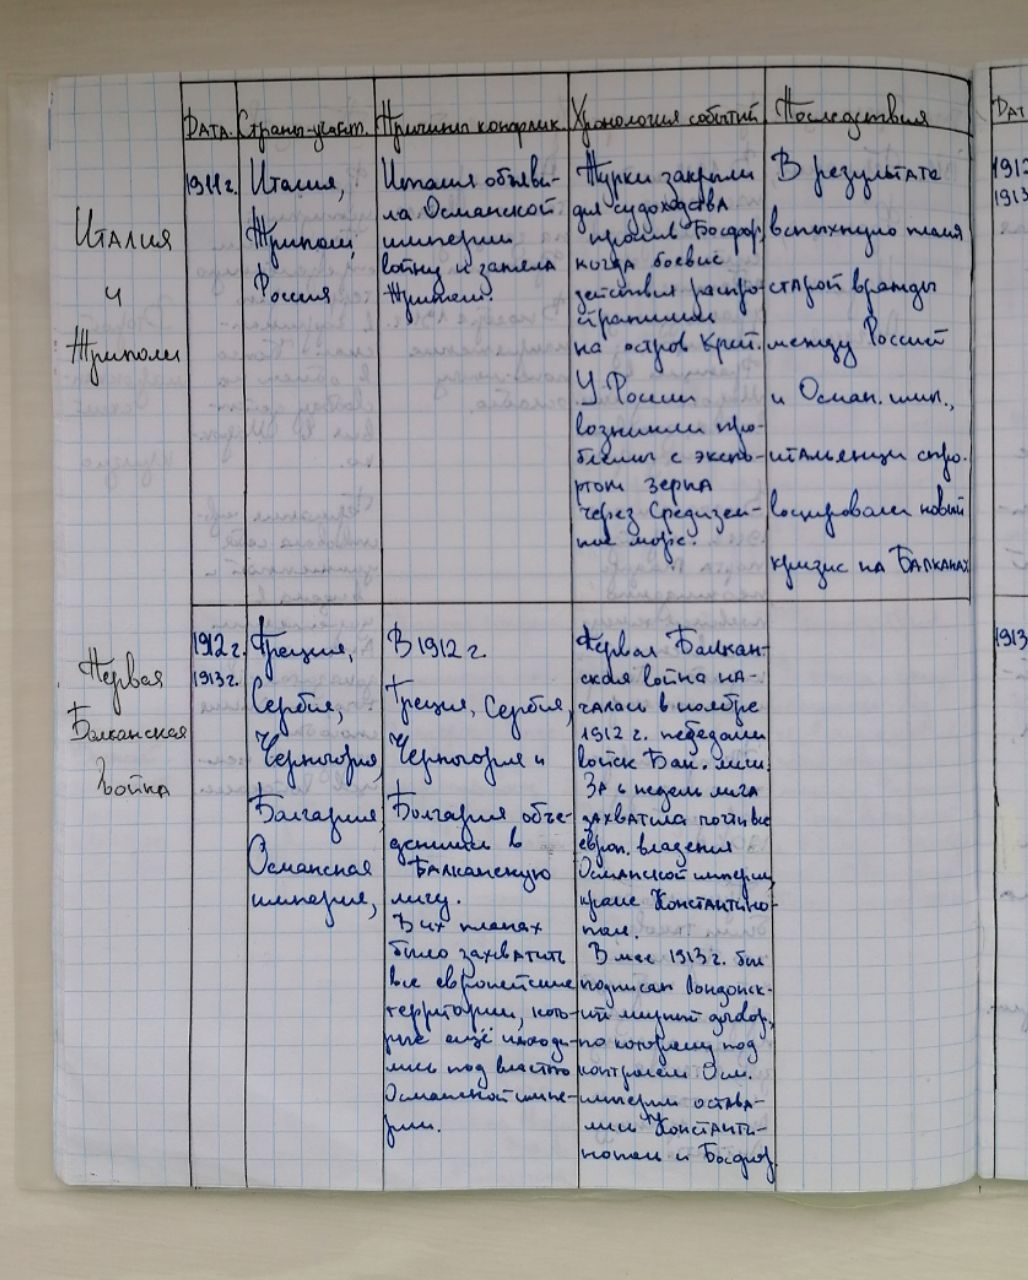 Дата.
Страны-участ.
Причины конфлик.
Хронология событий
Последствия
Италия
и
Триполи
1911г.
Италия,
Триполи,
Россия
Италия объяви-
ла Османской
империи
войну и заняла
Триполи.
Турки закрыли
для судоходства
пролив Босфор,
когда боевые
действия распро-
странили
на остров Крит.
У России
возникли про-
блемы с экспо-
ртом зерна
через Средизем-
ное море.
В результате
вспыхнуло пламя
старой вражды
между Россией
и Осман. имп.,
итальянцы спро-
воцировали новый
кризис на Балканах
Первая
Балканская
война
1912г.
1913г.
Греция,
Сербия,
Черногория,
Болгария,
Османская
империя,
В 1912 г.
Греция, Сербия,
Черногория и
Болгария объе-
денились в
Балканскую
лигу.
В их планах
было захватить
все европейские
территории, кото-
рые ещё находи-
лись под властью
Османской импе-
рии.
Первая Балкан-
ская война на-
чалась в ноябре
1912 г. победами
войск Бал. лиги.
За 6 недель лига
захватила почти все
европ. владения
Османской империи,
кроме Константино-
поля.
В мае 1913 г. был
подписан Лондонск-
ий мирный договор,
по которому под
контролем Осм.
империи остава-
лись Константи-
нополь и Босфор.
Дат
1912
1913
1913